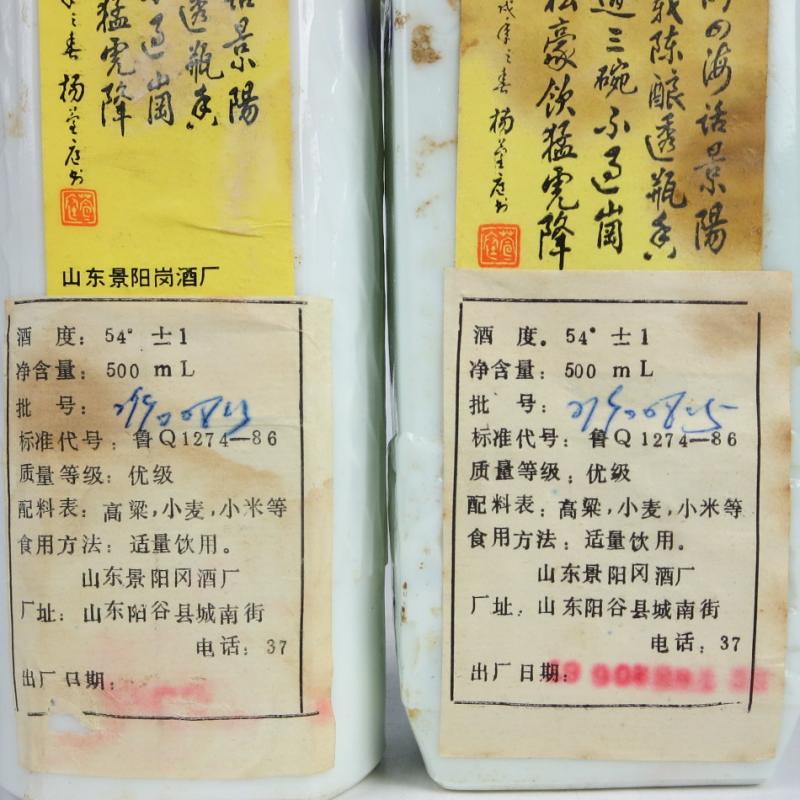 话景陽
透瓶香
不过崗
猛虎降
年之春 杨萱庭书
山东景阳岗酒厂
酒 度: 54° ±1
净含量: 500 mL
批 号:
标准代号: 鲁Q1274—86
质量等级: 优级
配料表: 高粱,小麦,小米等
食用方法: 适量饮用。
山东景阳冈酒厂
厂址: 山东阳谷县城南街
电话: 37
出厂日期:
四海话景陽
载陈酿透瓶香
三碗不过崗
豪饮猛虎降
戌年之春 杨萱庭书
酒 度. 54° ±1
净含量: 500 mL
批 号:
标准代号: 鲁Q1274—86
质量等级: 优级
配料表: 高粱,小麦,小米等
食用方法: 适量饮用。
山东景阳冈酒厂
厂址. 山东阳谷县城南街
电话: 37
出厂日期: